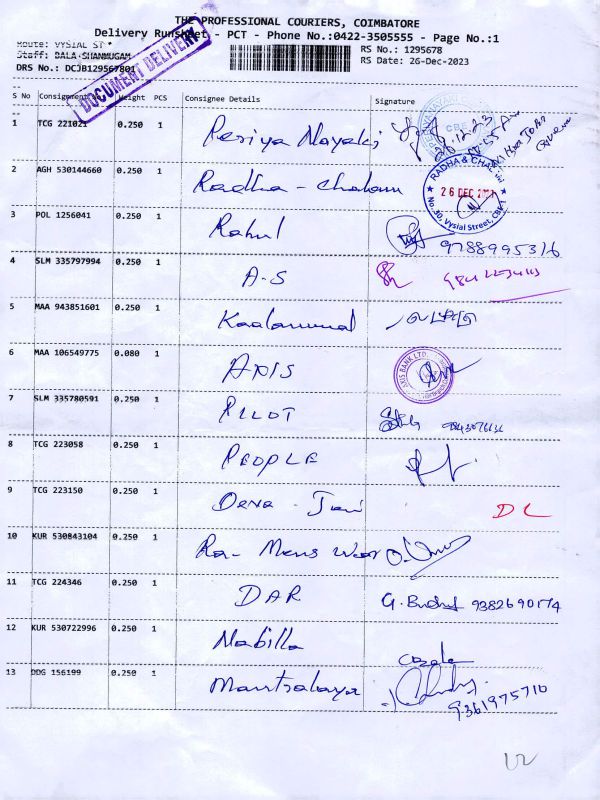 THE PROFESSIONAL COURIERS, COIMBATORE
Delivery Runsheet - PCT - Phone No.:0422-3505555 - Page No.:1
Route: VYSIAL ST *
Staff: BALA-SHANMUGAM
DRS No.: DCJB129567801
RS No.: 1295678
RS Date: 26-Dec-2023
DOCUMENT DELIVERY
S No Consignment Weight PCS Consignee Details Signature
1 TCG 221021 0.250 1 Periya Nayaki
2 AGH 530144660 0.250 1 Radha - Chalam
RADHA & CHA
26 DEC
No.30, Vysial Street, CBE-1
3 POL 1256041 0.250 1 Rahul 9788995316
4 SLM 335797994 0.250 1 A-S
5 MAA 943851601 0.250 1
6 MAA 106549775 0.080 1 AXIS
AXIS BANK LTD.
7 SLM 335780591 0.250 1 PILOT
8 TCG 223058 0.250 1 PEOPLE
9 TCG 223150 0.250 1 Deva - DL
10 KUR 530843104 0.250 1 Ra- Mens Wear
11 TCG 224346 0.250 1 DAR G.
12 KUR 530722996 0.250 1 Nabilla
13 DDG 156199 0.250 1 Mantralaya 9361975710